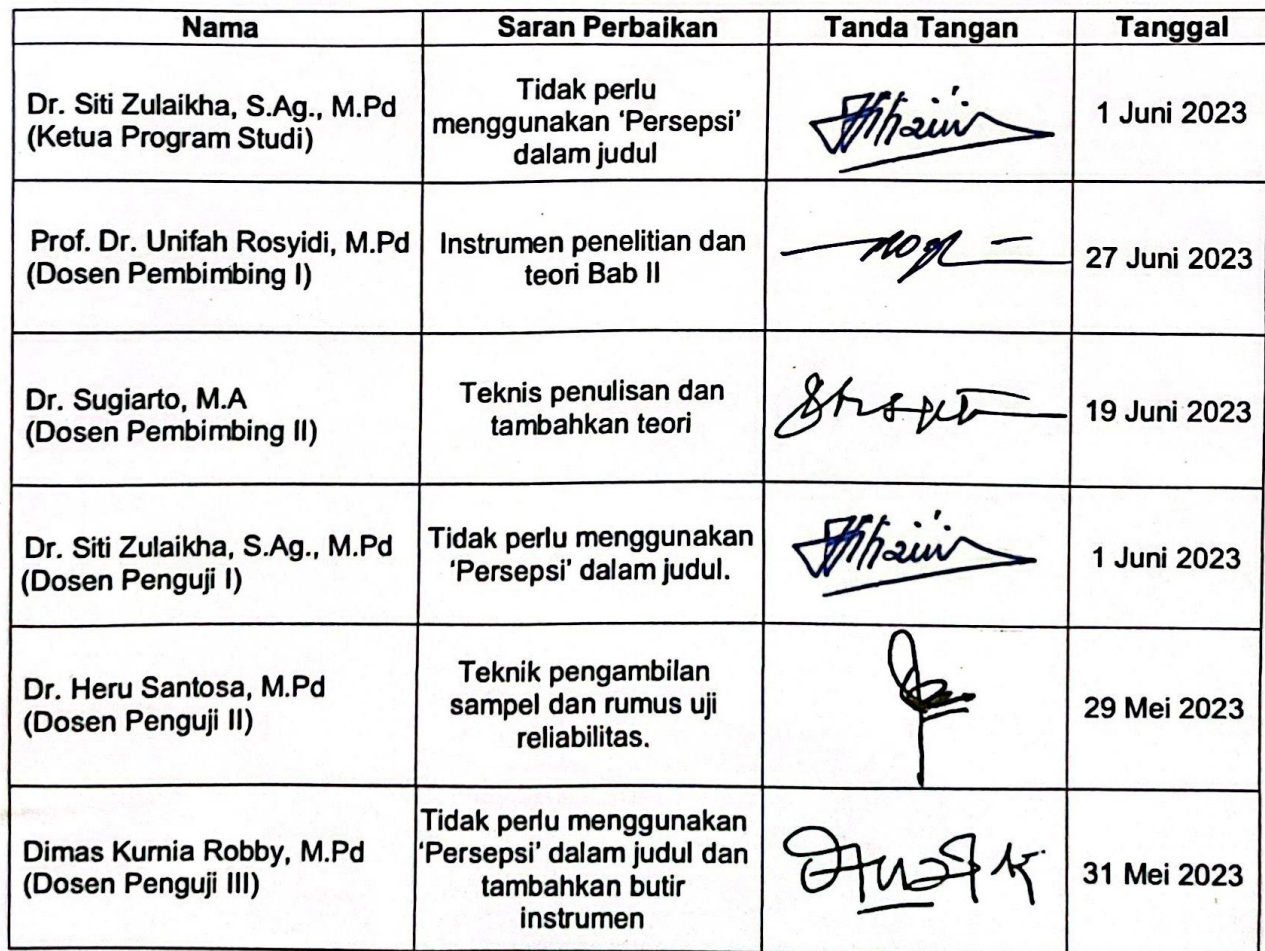 Nama Saran Perbaikan Tanda Tangan Tanggal
Dr. Siti Zulaikha, S.Ag., M.Pd
(Ketua Program Studi)
Tidak perlu
menggunakan ‘Persepsi’
dalam judul
1 Juni 2023
Prof. Dr. Unifah Rosyidi, M.Pd
(Dosen Pembimbing I)
Instrumen penelitian dan
teori Bab II
27 Juni 2023
Dr. Sugiarto, M.A
(Dosen Pembimbing II)
Teknis penulisan dan
tambahkan teori
19 Juni 2023
Dr. Siti Zulaikha, S.Ag., M.Pd
(Dosen Penguji I)
Tidak perlu menggunakan
‘Persepsi’ dalam judul.
1 Juni 2023
Dr. Heru Santosa, M.Pd
(Dosen Penguji II)
Teknik pengambilan
sampel dan rumus uji
reliabilitas.
29 Mei 2023
Dimas Kurnia Robby, M.Pd
(Dosen Penguji III)
Tidak perlu menggunakan
‘Persepsi’ dalam judul dan
tambahkan butir
instrumen
31 Mei 2023